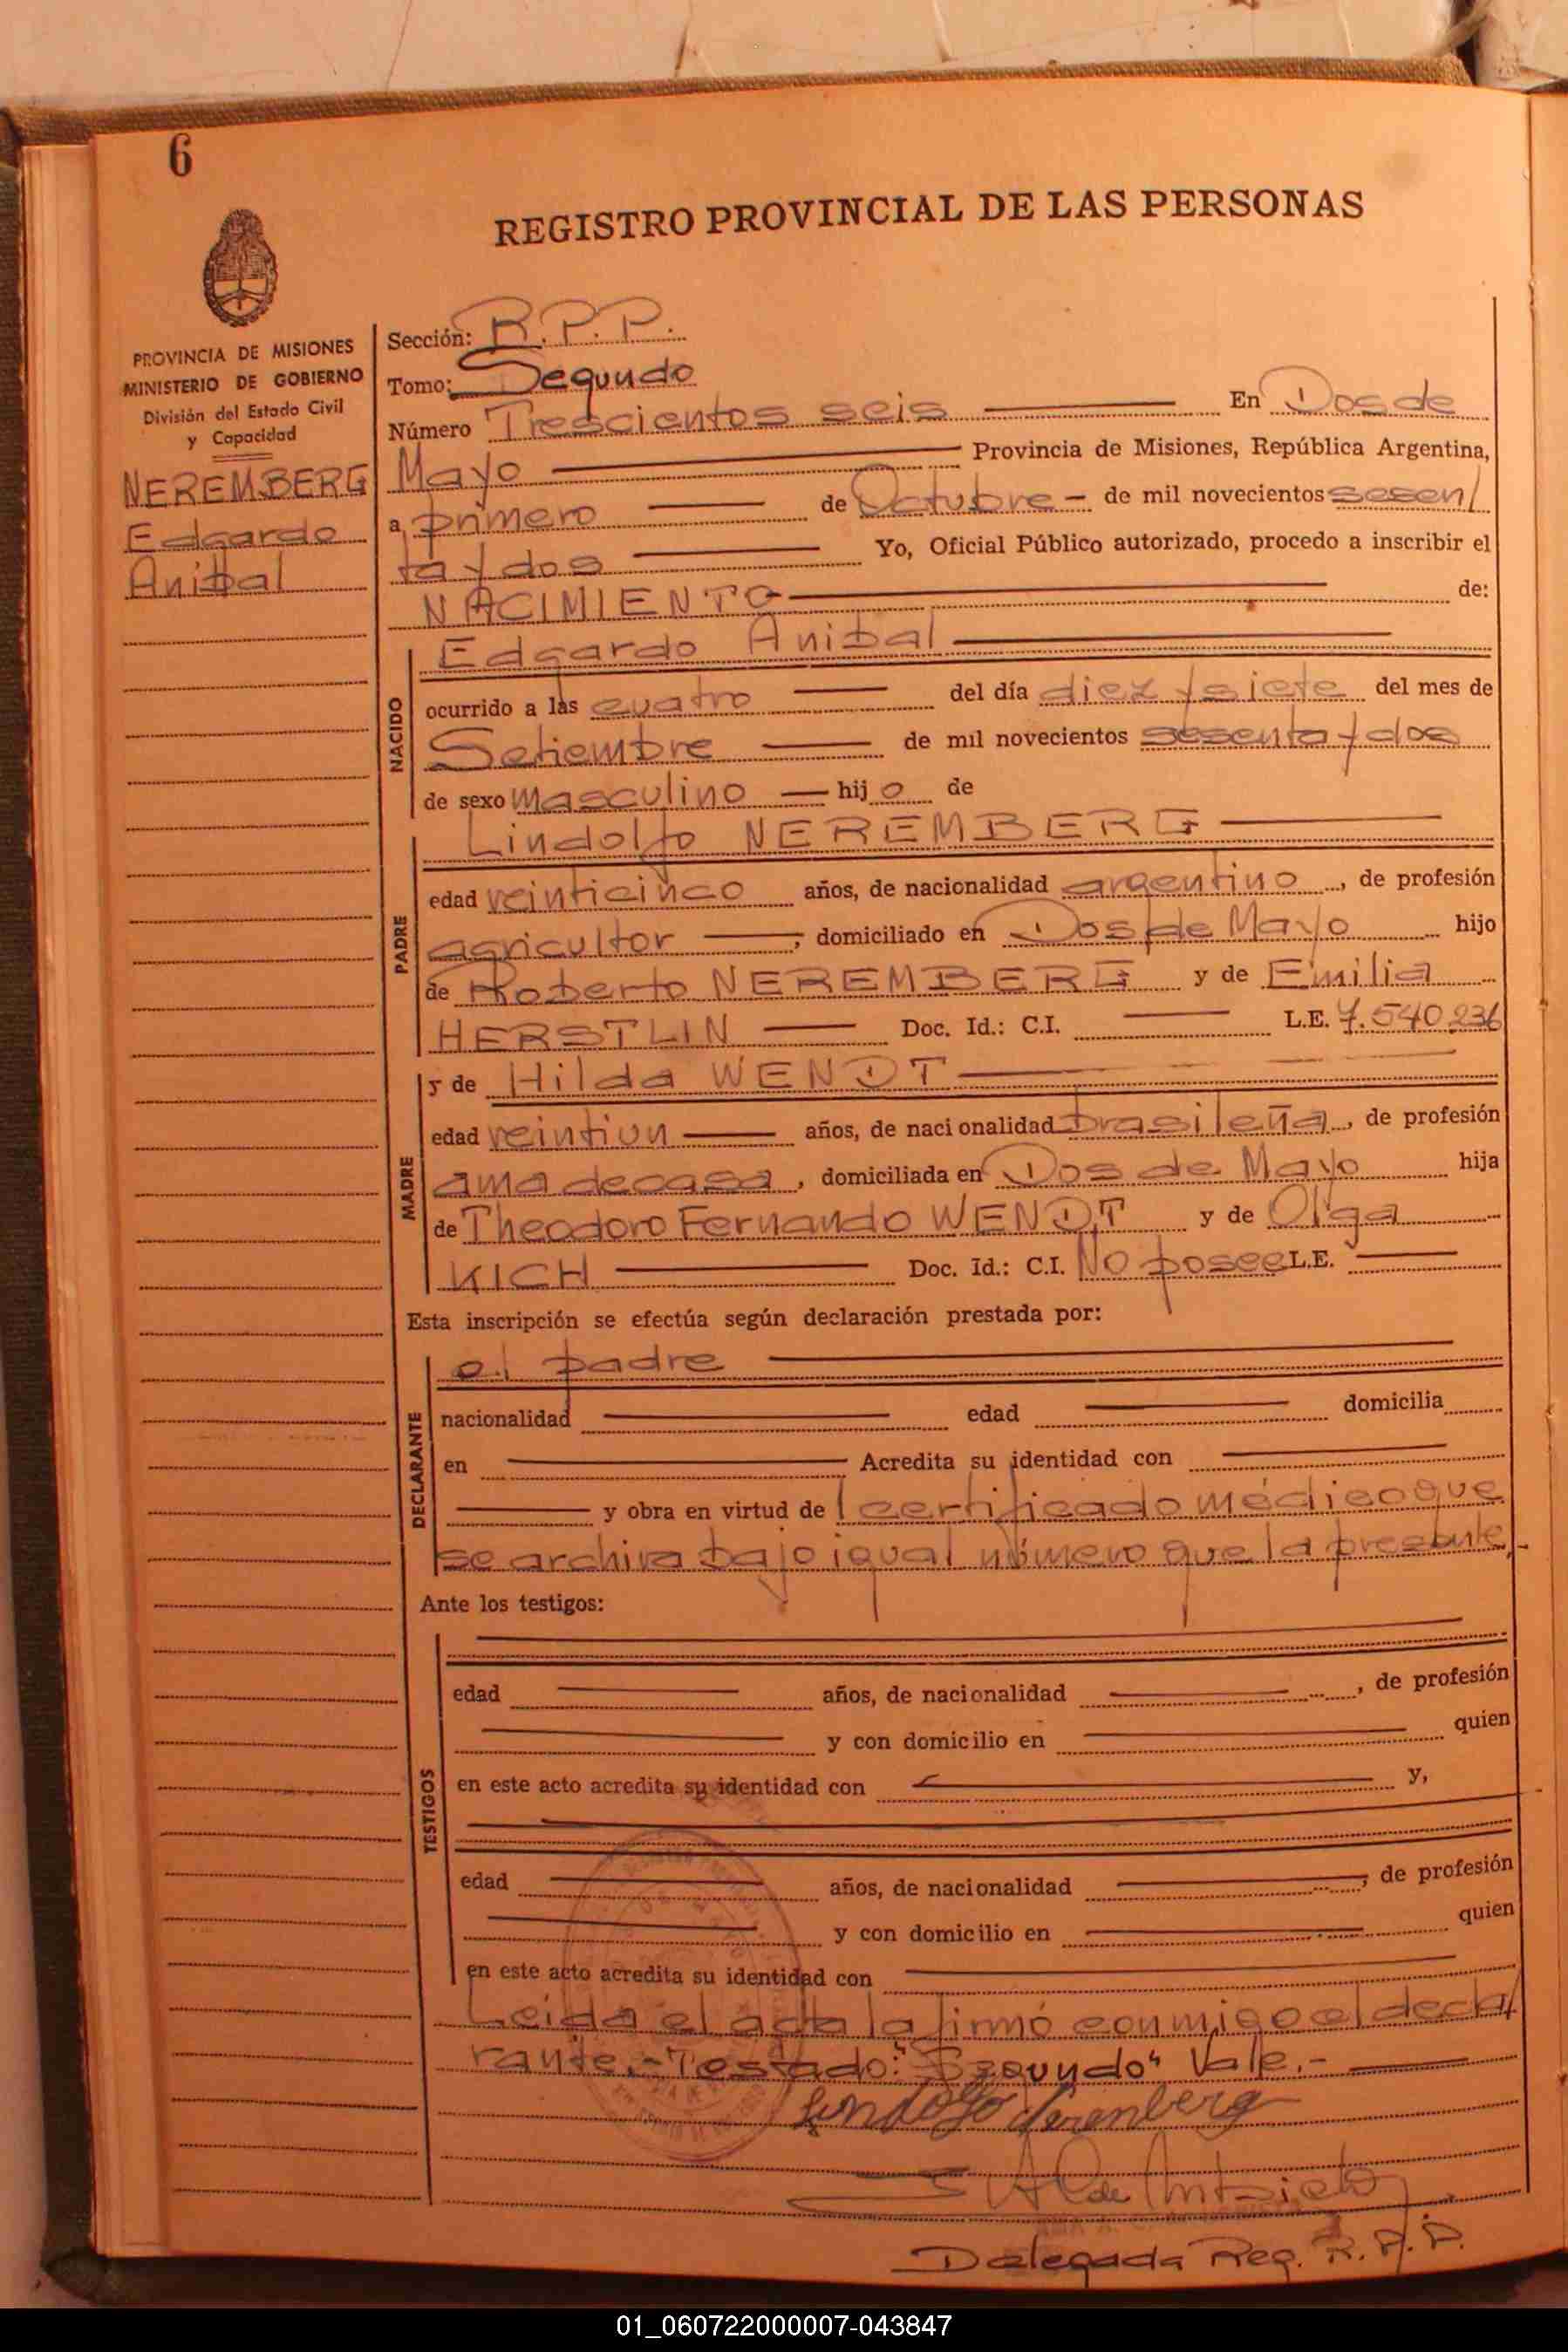 6
REGISTRO PROVINCIAL DE LAS PERSONAS
PROVINCIA DE MISIONES
MINISTERIO DE GOBIERNO
División del Estado Civil
y Capacidad
NEREMBERG
Edgardo
Anibal
Sección: R.P.P.
Tomo: Segundo
Número Trescientos seis En Dos de
Mayo Provincia de Misiones, República Argentina,
a primero de Octubre - de mil novecientos sesen/
ta y dos Yo, Oficial Público autorizado, procedo a inscribir el
NACIMIENTO de:
NACIDO
Edgardo Anibal
ocurrido a las cuatro del día diez y siete del mes de
Setiembre de mil novecientos sesenta y dos
de sexo masculino hijo de
PADRE
Lindolfo NEREMBERG
edad veinticinco años, de nacionalidad argentino, de profesión
agricultor, domiciliado en Dos de Mayo hijo
de Roberto NEREMBERG y de Emilia
HERSTLIN Doc. Id.: C.I. L.E. 7.540.236
MADRE
y de Hilda WENDT
edad veintiun años, de nacionalidad brasileña, de profesión
ama de casa, domiciliada en Dos de Mayo hija
de Theodoro Fernando WENDT y de Olga
KICH Doc. Id.: C.I. No posee L.E.
Esta inscripción se efectúa según declaración prestada por:
DECLARANTE
el padre
nacionalidad edad domicilia
en Acredita su identidad con
y obra en virtud de l certificado médico que
se archiva bajo igual número que la presente.-
Ante los testigos:
TESTIGOS
edad años, de nacionalidad , de profesión
y con domicilio en quien
en este acto acredita su identidad con y,
edad años, de nacionalidad , de profesión
y con domicilio en quien
en este acto acredita su identidad con
Leida el acta la firmó conmigo el decla/
rante.- Testado: "Segundo" Vale.-
Lindolfo Nerenberg
Delegada Reg. R.P.P.
01_060722000007-043847